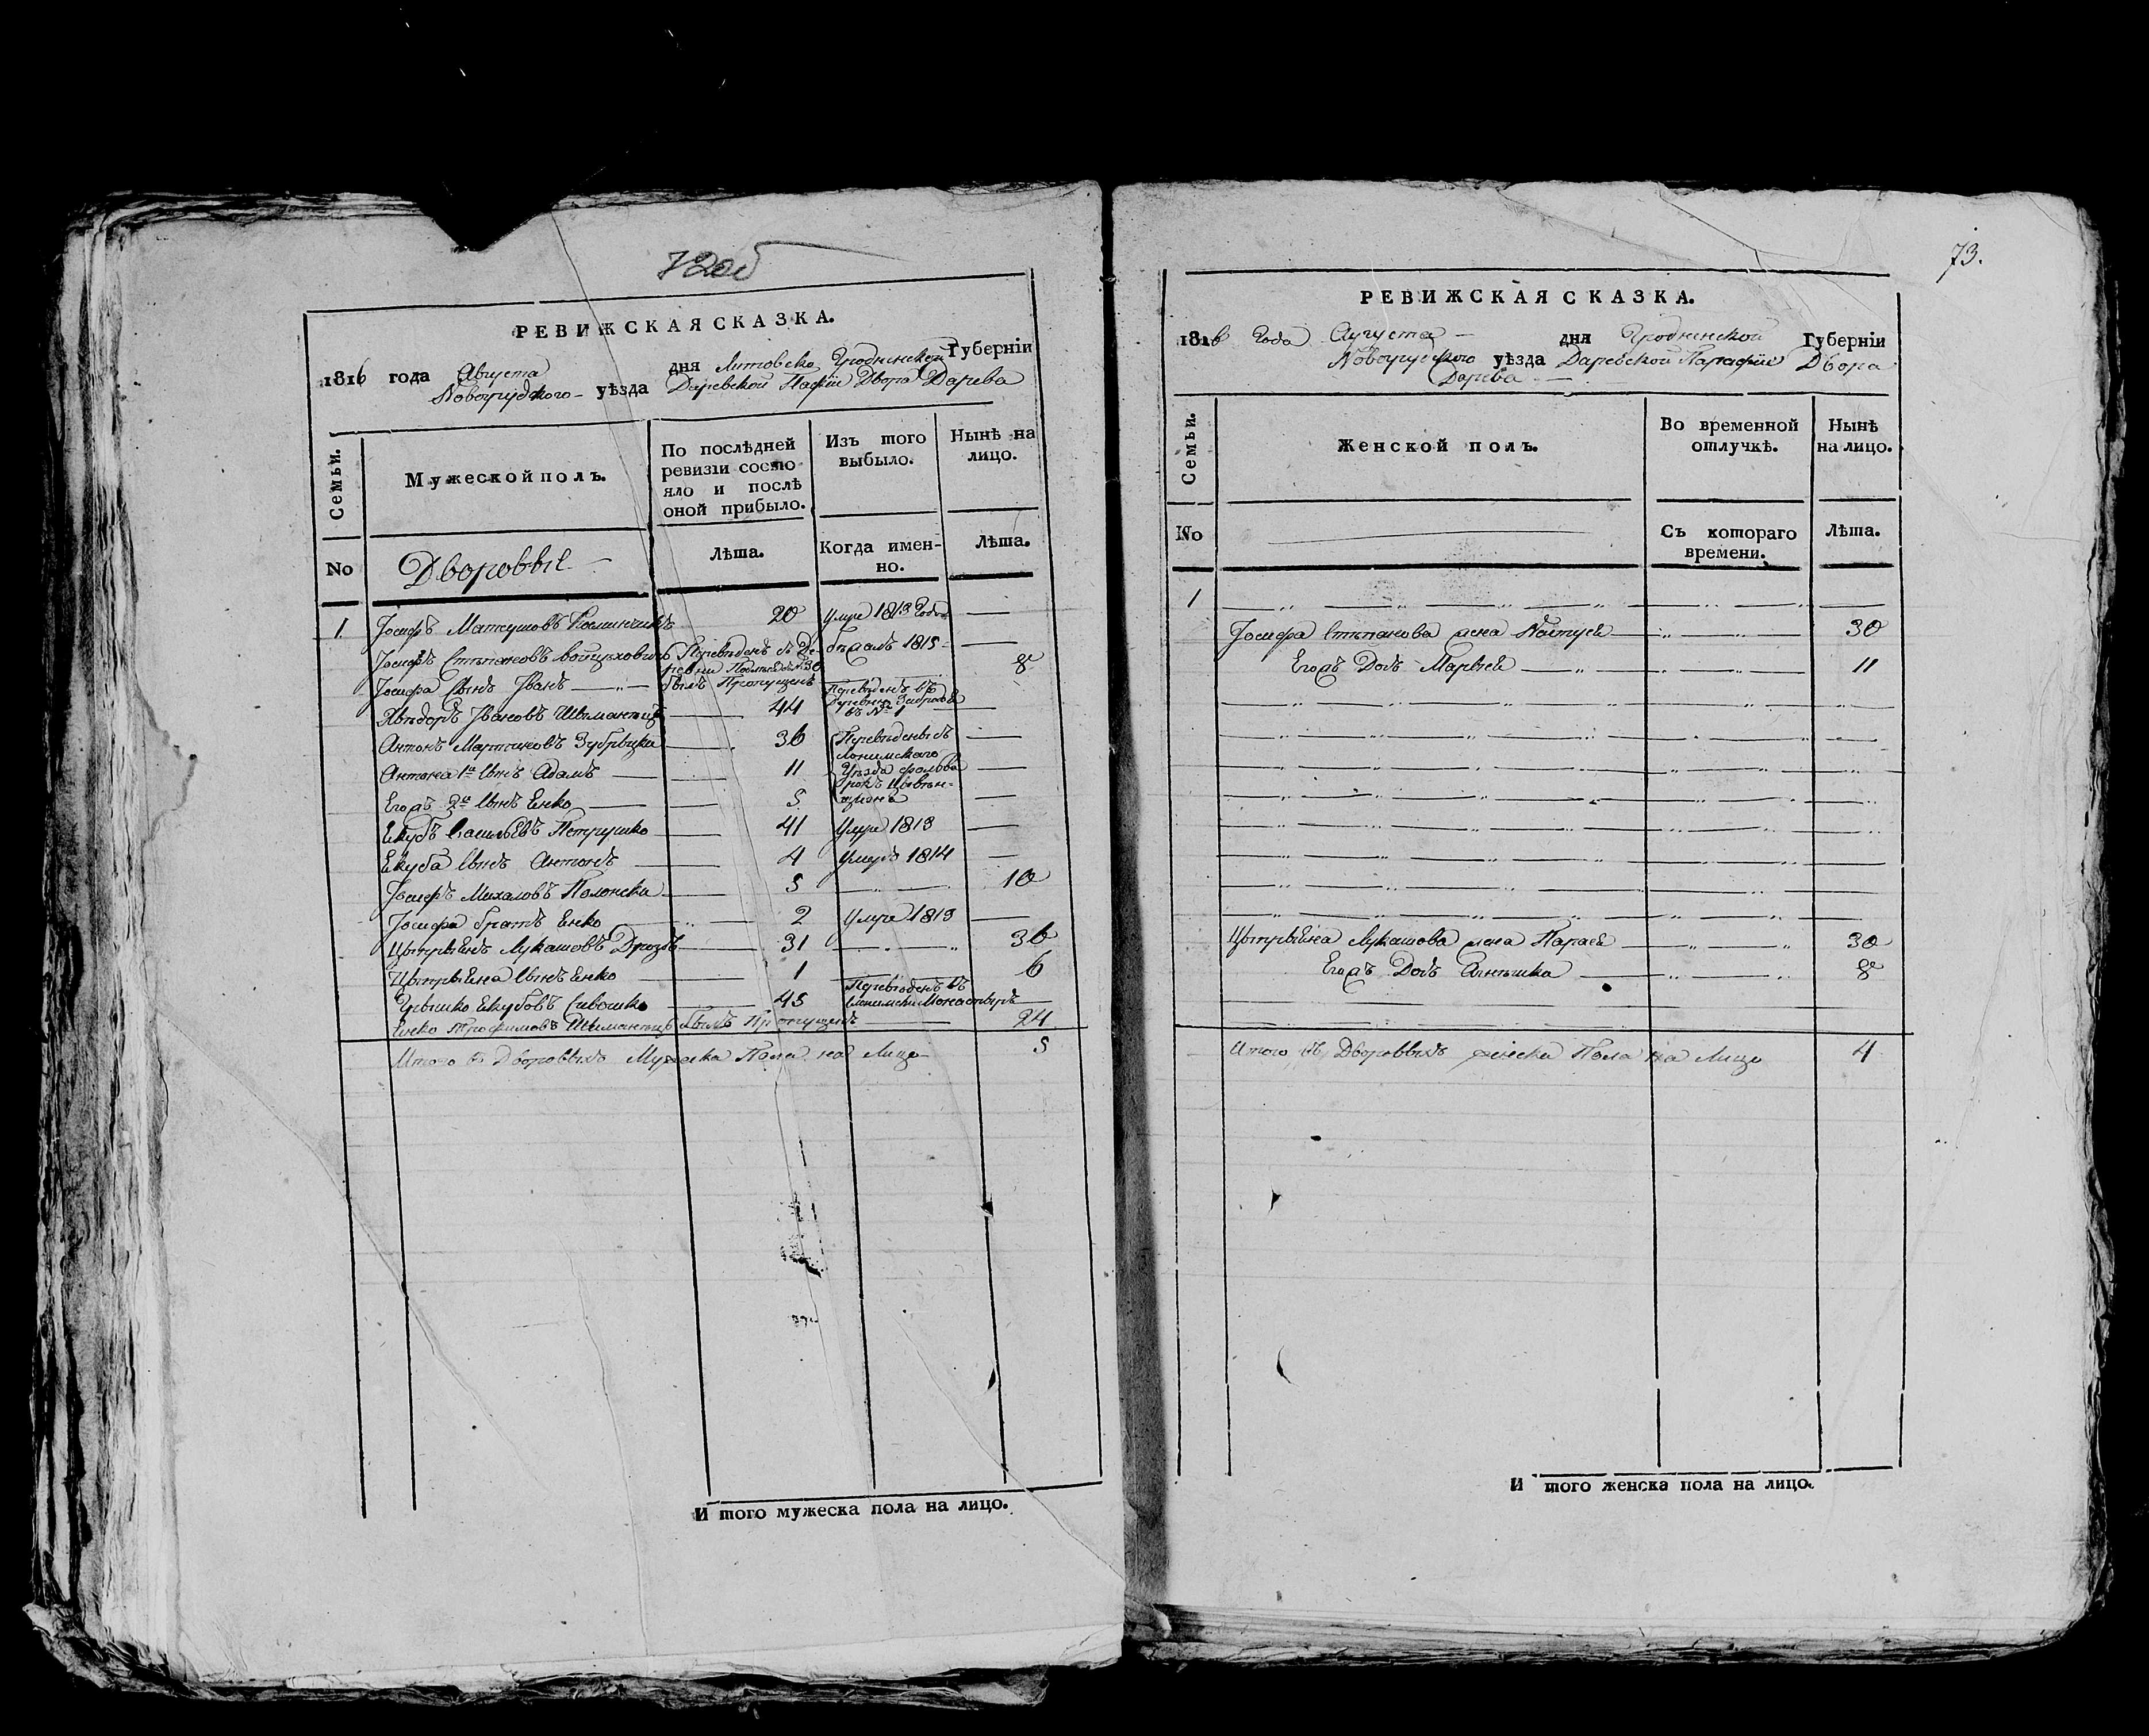 72об
РЕВИЖСКАЯ СКАЗКА.
1816 года Августа дня Литовско Гродненской Губерніи
Новогрудского уѣзда Даревской Пафіи Двора Дарева
Семьи.
Мужеской полъ.
По послѣдней ревизіи состояло и послѣ оной прибыло.
Изъ того выбыло.
Нынѣ на лицо.
No
Дворовые
Лѣта.
Когда именно.
Лѣта.
1 Іосифъ Матеушовъ 20 Умре 1813 Года
Іосифъ Степановъ Войцеховичъ Переведенъ съ Деревни 1815
Іосифа Сынъ Иванъ былъ Пропущенъ 8
Ивановъ 44 Переведенъ въ Деревню въ № 1
Антонъ Мартиновъ Зубрицки 36 Переведены въ
Антона 1й Сынъ Адамъ 11 Уѣзда
Егожъ 2й Сынъ Енко 5
Екубъ Васильевъ Петрушко 41 Умре 1813
Екуба Сынъ Антонъ 4 Умеръ 1814
Іосифъ Михаловъ Полонски 5 10
Іосифа братъ Енко 2 Умре 1813
Цыпрыянъ Лукашовъ Дроздъ 31 36
Цыпрыяна Сынъ Енко 1 6
Грышко Екубовъ Сивошко 45 Переведенъ въ
Енко Трофимовъ былъ Пропущенъ 24
Итого въ Дворовыхъ Мужска Пола на Лицо 5
И того мужеска пола на лицо.
73.
РЕВИЖСКАЯ СКАЗКА.
1816 Года Августа дня Гродненской Губерніи
Новогрудского уѣзда Даревской Парафіи Двора
Дарева
Семьи.
Женской полъ.
Во временной отлучкѣ.
Нынѣ на лицо.
No
Съ котораго времени.
Лѣта.
1
Іосифа Степанова жена Настуся 30
Егожъ Дочь Марыя 11
Цыпрыяна Лукашова жена Парася 30
Егожъ Дочь Агнешка 8
Итого въ Дворовыхъ женска Пола на Лицо 4
И того женска пола на лицо.